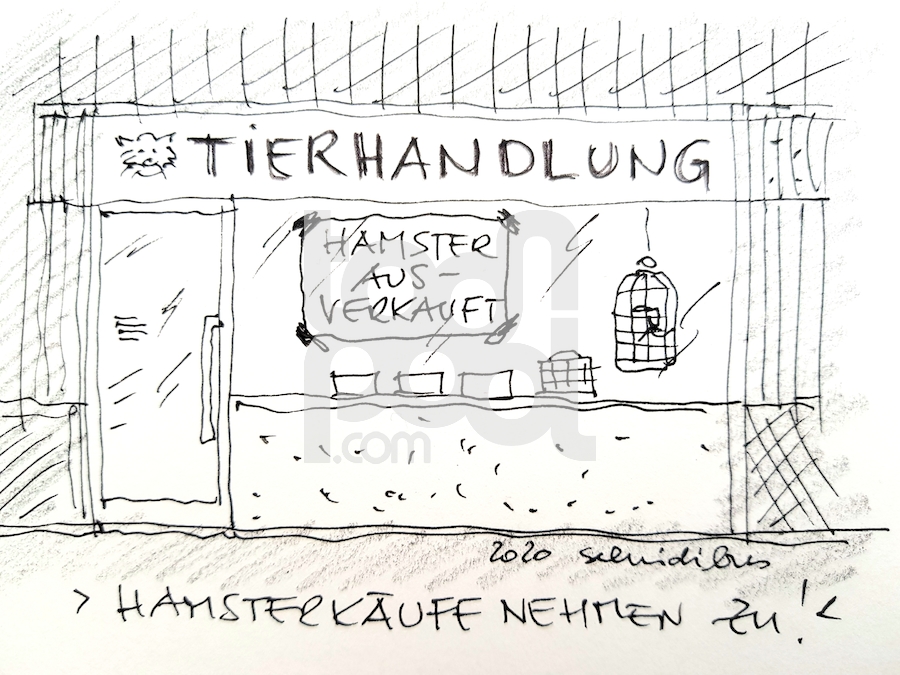 TIERHANDLUNG
HAMSTER
AUS-
VERKAUFT
toonpool
.com
2020 schidibus
> HAMSTERKÄUFE NEHMEN ZU! <